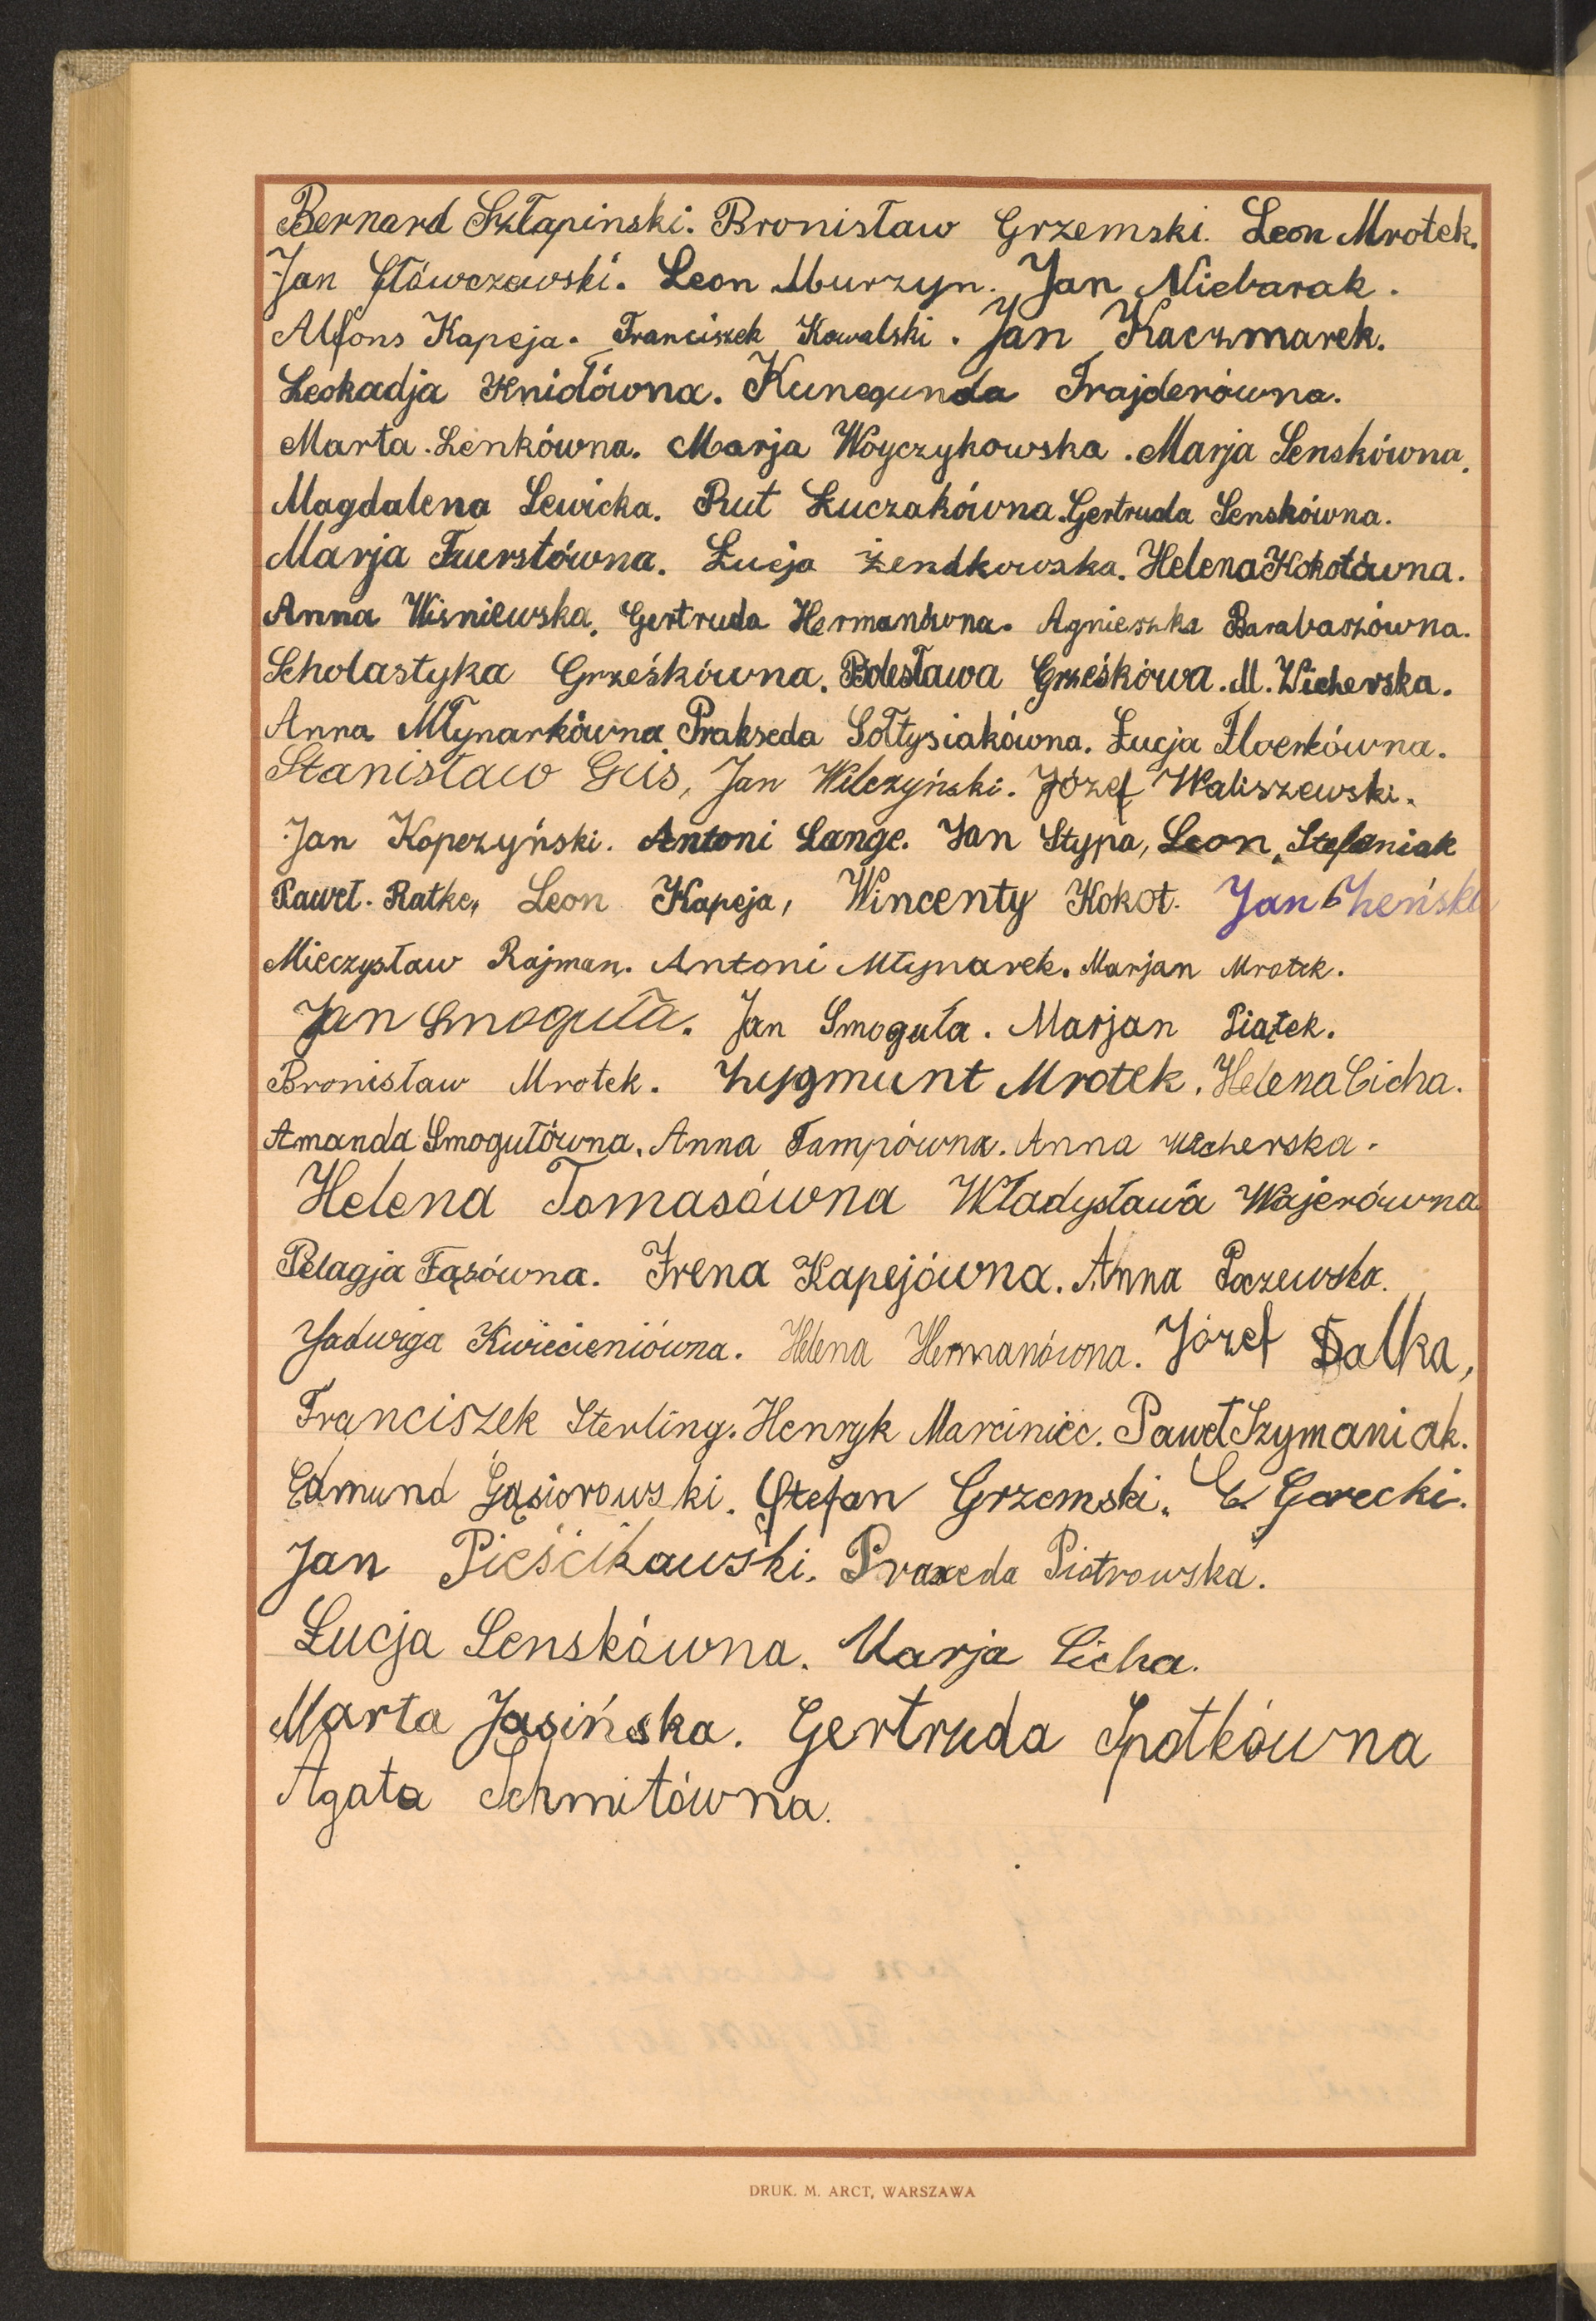 Bernard Szłapinski. Bronisław Grzemski. Leon Mrotek.
Jan Główczewski. Leon Murzyn. Jan Niebarak.
Alfons Kapeja. Franciszek Kowalski. Jan Kaczmarek.
Leokadja Knidłówna. Kunegunda Trajderówna.
Marta Lenkówna. Marja Woyczykowska. Marja Senskówna.
Magdalena Lewicka. Rut Łuczakówna. Gertruda Senskówna.
Marja Fuerstówna. Łucja Żendkowska. Helena Kokotówna.
Anna Wisniewska. Gertruda Hermanówna. Agnieszka Barabaszówna.
Scholastyka Grześkówna. Bolesława Grześkówa. M. Wicherska.
Anna Młynarkówna Prakseda Sołtysiakówna. Łucja
Stanisław Guis, Jan Wilczyński. Józef Waliszewski.
Jan Kopczyński. Antoni Lange. Jan Stypa, Leon, Stefaniak
Paweł. Ratke, Leon Kapeja, Wincenty Kokot. Jan
Mieczysław Rajman. Antoni Młynarek. Marjan Mrotek.
Jan Smoguła. Jan Smoguła. Marjan Piątek.
Bronisław Mrotek. Zygmunt Mrotek. Helena Cicha.
Amanda Smogułówna. Anna Tampówna. Anna Wicherska.
Helena Tomasówna Władysława Wajerówna
Pelagja Fąsówna. Irena Kapejówna. Anna Paczewska.
Jadwiga Kwiecieniówna. Helena Hermanówna. Józef Dalka,
Franciszek Sterling. Henryk Marciniec. Paweł Szymaniak.
Edmund Gąsiorowski. Stefan Grzemski. E. Gorecki.
Jan Pieścikowski. Praxeda Piotrowska.
Łucja Senskówna. Marja Cicha.
Marta Jasińska. Gertruda Spotkówna
Agata Schmitówna.
DRUK. M. ARCT, WARSZAWA